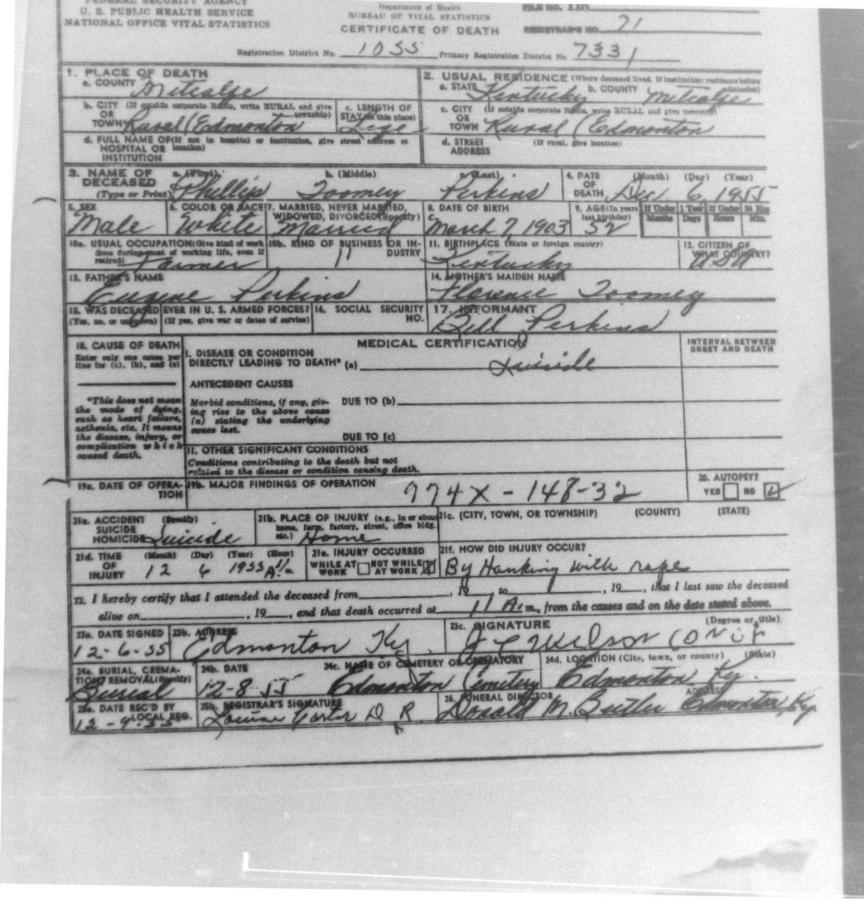 FEDERAL SECURITY AGENCY
U. S. PUBLIC HEALTH SERVICE
NATIONAL OFFICE VITAL STATISTICS
Department of Health
BUREAU OF VITAL STATISTICS
CERTIFICATE OF DEATH
FILE NO. 116
REGISTRAR'S NO. 71
Registration District No. 1055 Primary Registration District No. 7331
1. PLACE OF DEATH
a. COUNTY Metcalfe
2. USUAL RESIDENCE (Where deceased lived. If institution: residence before admission)
a. STATE Kentucky b. COUNTY Metcalfe
b. CITY (If outside corporate limits, write RURAL and give township)
OR TOWN Rural (Edmonton
c. LENGTH OF STAY (in this place) Life
c. CITY (If outside corporate limits, write RURAL and give township)
OR TOWN Rural (Edmonton
d. FULL NAME OF (If not in hospital or institution, give street address or location)
HOSPITAL OR INSTITUTION
d. STREET ADDRESS (If rural, give location)
3. NAME OF DECEASED (Type or Print)
a. (First) Phillip b. (Middle) Toomey c. (Last) Perkins
4. DATE OF DEATH (Month) (Day) (Year) Dec 6, 1955
5. SEX Male
6. COLOR OR RACE White
7. MARRIED, NEVER MARRIED, WIDOWED, DIVORCED (Specify) Married
8. DATE OF BIRTH March 7, 1903
9. AGE (In years last birthday) 52
If Under 1 Year Months Days If Under 24 Hrs Hours Min.
10a. USUAL OCCUPATION (Give kind of work done during most of working life, even if retired) Farmer
10b. KIND OF BUSINESS OR INDUSTRY 11
11. BIRTHPLACE (State or foreign country) Kentucky
12. CITIZEN OF WHAT COUNTRY? USA
13. FATHER'S NAME
Eugene Perkins
14. MOTHER'S MAIDEN NAME
Florence Toomey
15. WAS DECEASED EVER IN U. S. ARMED FORCES?
(Yes, no, or unknown) (If yes, give war or dates of service)
16. SOCIAL SECURITY NO.
17. INFORMANT
Bill Perkins
18. CAUSE OF DEATH
Enter only one cause per line for (a), (b), and (c)
MEDICAL CERTIFICATION
INTERVAL BETWEEN ONSET AND DEATH
I. DISEASE OR CONDITION
DIRECTLY LEADING TO DEATH* (a) Suicide
*This does not mean the mode of dying, such as heart failure, asthenia, etc. It means the disease, injury, or complication which caused death.
ANTECEDENT CAUSES
Morbid conditions, if any, giving rise to the above cause (a) stating the underlying cause last.
DUE TO (b)
DUE TO (c)
II. OTHER SIGNIFICANT CONDITIONS
Conditions contributing to the death but not related to the disease or condition causing death.
19a. DATE OF OPERATION
19b. MAJOR FINDINGS OF OPERATION
774X - 148-32
20. AUTOPSY?
YES NO
21a. ACCIDENT SUICIDE HOMICIDE (Specify) Suicide
21b. PLACE OF INJURY (e.g., in or about home, farm, factory, street, office bldg. etc.) Home
21c. (CITY, TOWN, OR TOWNSHIP) (COUNTY) (STATE)
21d. TIME OF INJURY (Month) (Day) (Year) (Hour)
12 6 1955 11 A.m.
21e. INJURY OCCURRED
WHILE AT WORK NOT WHILE AT WORK
21f. HOW DID INJURY OCCUR?
By Hanking with rope
22. I hereby certify that I attended the deceased from , 19 to , 19 , that I last saw the deceased
alive on , 19 , and that death occurred at 11 A.m., from the causes and on the date stated above.
23a. DATE SIGNED
12-6-55
23b. ADDRESS
Edmonton Ky.
23c. SIGNATURE (Degree or title)
Wilson
24a. BURIAL, CREMATION? REMOVAL (Specify)
Burial
24b. DATE
12-8-55
24c. NAME OF CEMETERY OR CREMATORY
Edmonton Cemetery
24d. LOCATION (City, town, or county) (State)
Edmonton Ky.
25a. DATE REC'D BY LOCAL REG.
12-9-55
25b. REGISTRAR'S SIGNATURE
Louise Carter D. R.
26. FUNERAL DIRECTOR ADDRESS
Donald M. Butler Edmonton, Ky